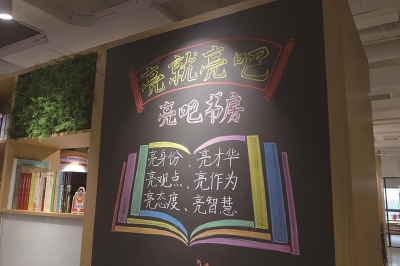 亮就亮吧
亮吧书房
亮身份、亮才华
亮观点、亮作为
亮态度、亮智慧